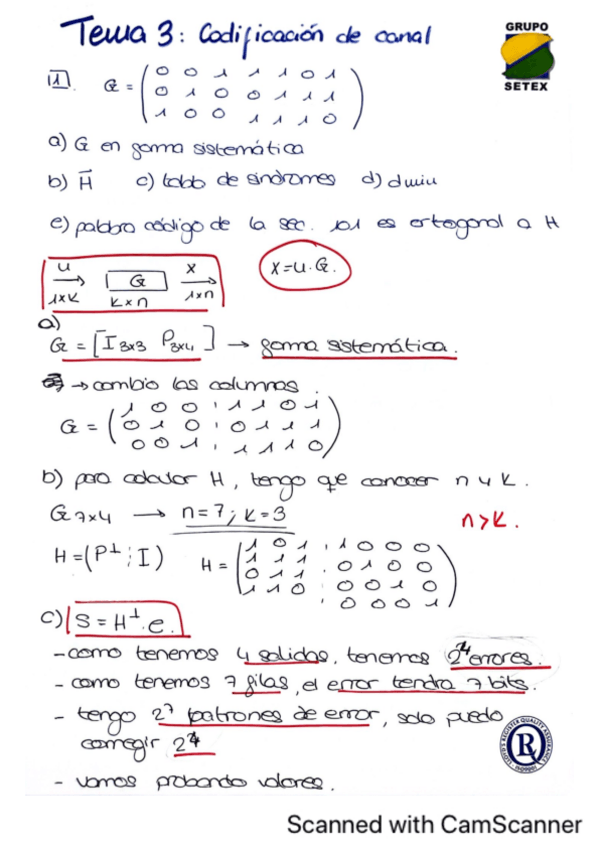 Tema 3: Codificación de canal
GRUPO
SETEX
1. G = ( 0 0 1 1 1 0 1
0 1 0 0 1 1 1
1 0 0 1 1 1 0 )
a) G en forma sistemática
b) H c) tabla de síndromes d) dmin
e) palabra código de la sec. 101 es ortogonal a H
u → G → x
1xK KxN 1xn
x=u.G.
a)
G = [I3x3 P3x4] → forma sistemática.
→ cambio las columnas.
G = ( 1 0 0 ¦ 1 1 0 1
0 1 0 ¦ 0 1 1 1
0 0 1 ¦ 1 1 1 0 )
b) para calcular H, tengo que conocer n y K.
G7x4 → n=7; K=3 n>K.
H=(P⊥¦I) H = ( 1 0 1 ¦ 1 0 0 0
1 1 1 ¦ 0 1 0 0
0 1 1 ¦ 0 0 1 0
1 1 0 ¦ 0 0 0 1 )
c) S = H⊥.e.
-como tenemos 4 salidas, tenemos 2⁴ errores.
- como tenemos 7 filas, el error tendrá 7 bits.
- tengo 2⁷ patrones de error, solo puedo
corregir 2⁴
- vamos probando valores.
Scanned with CamScanner